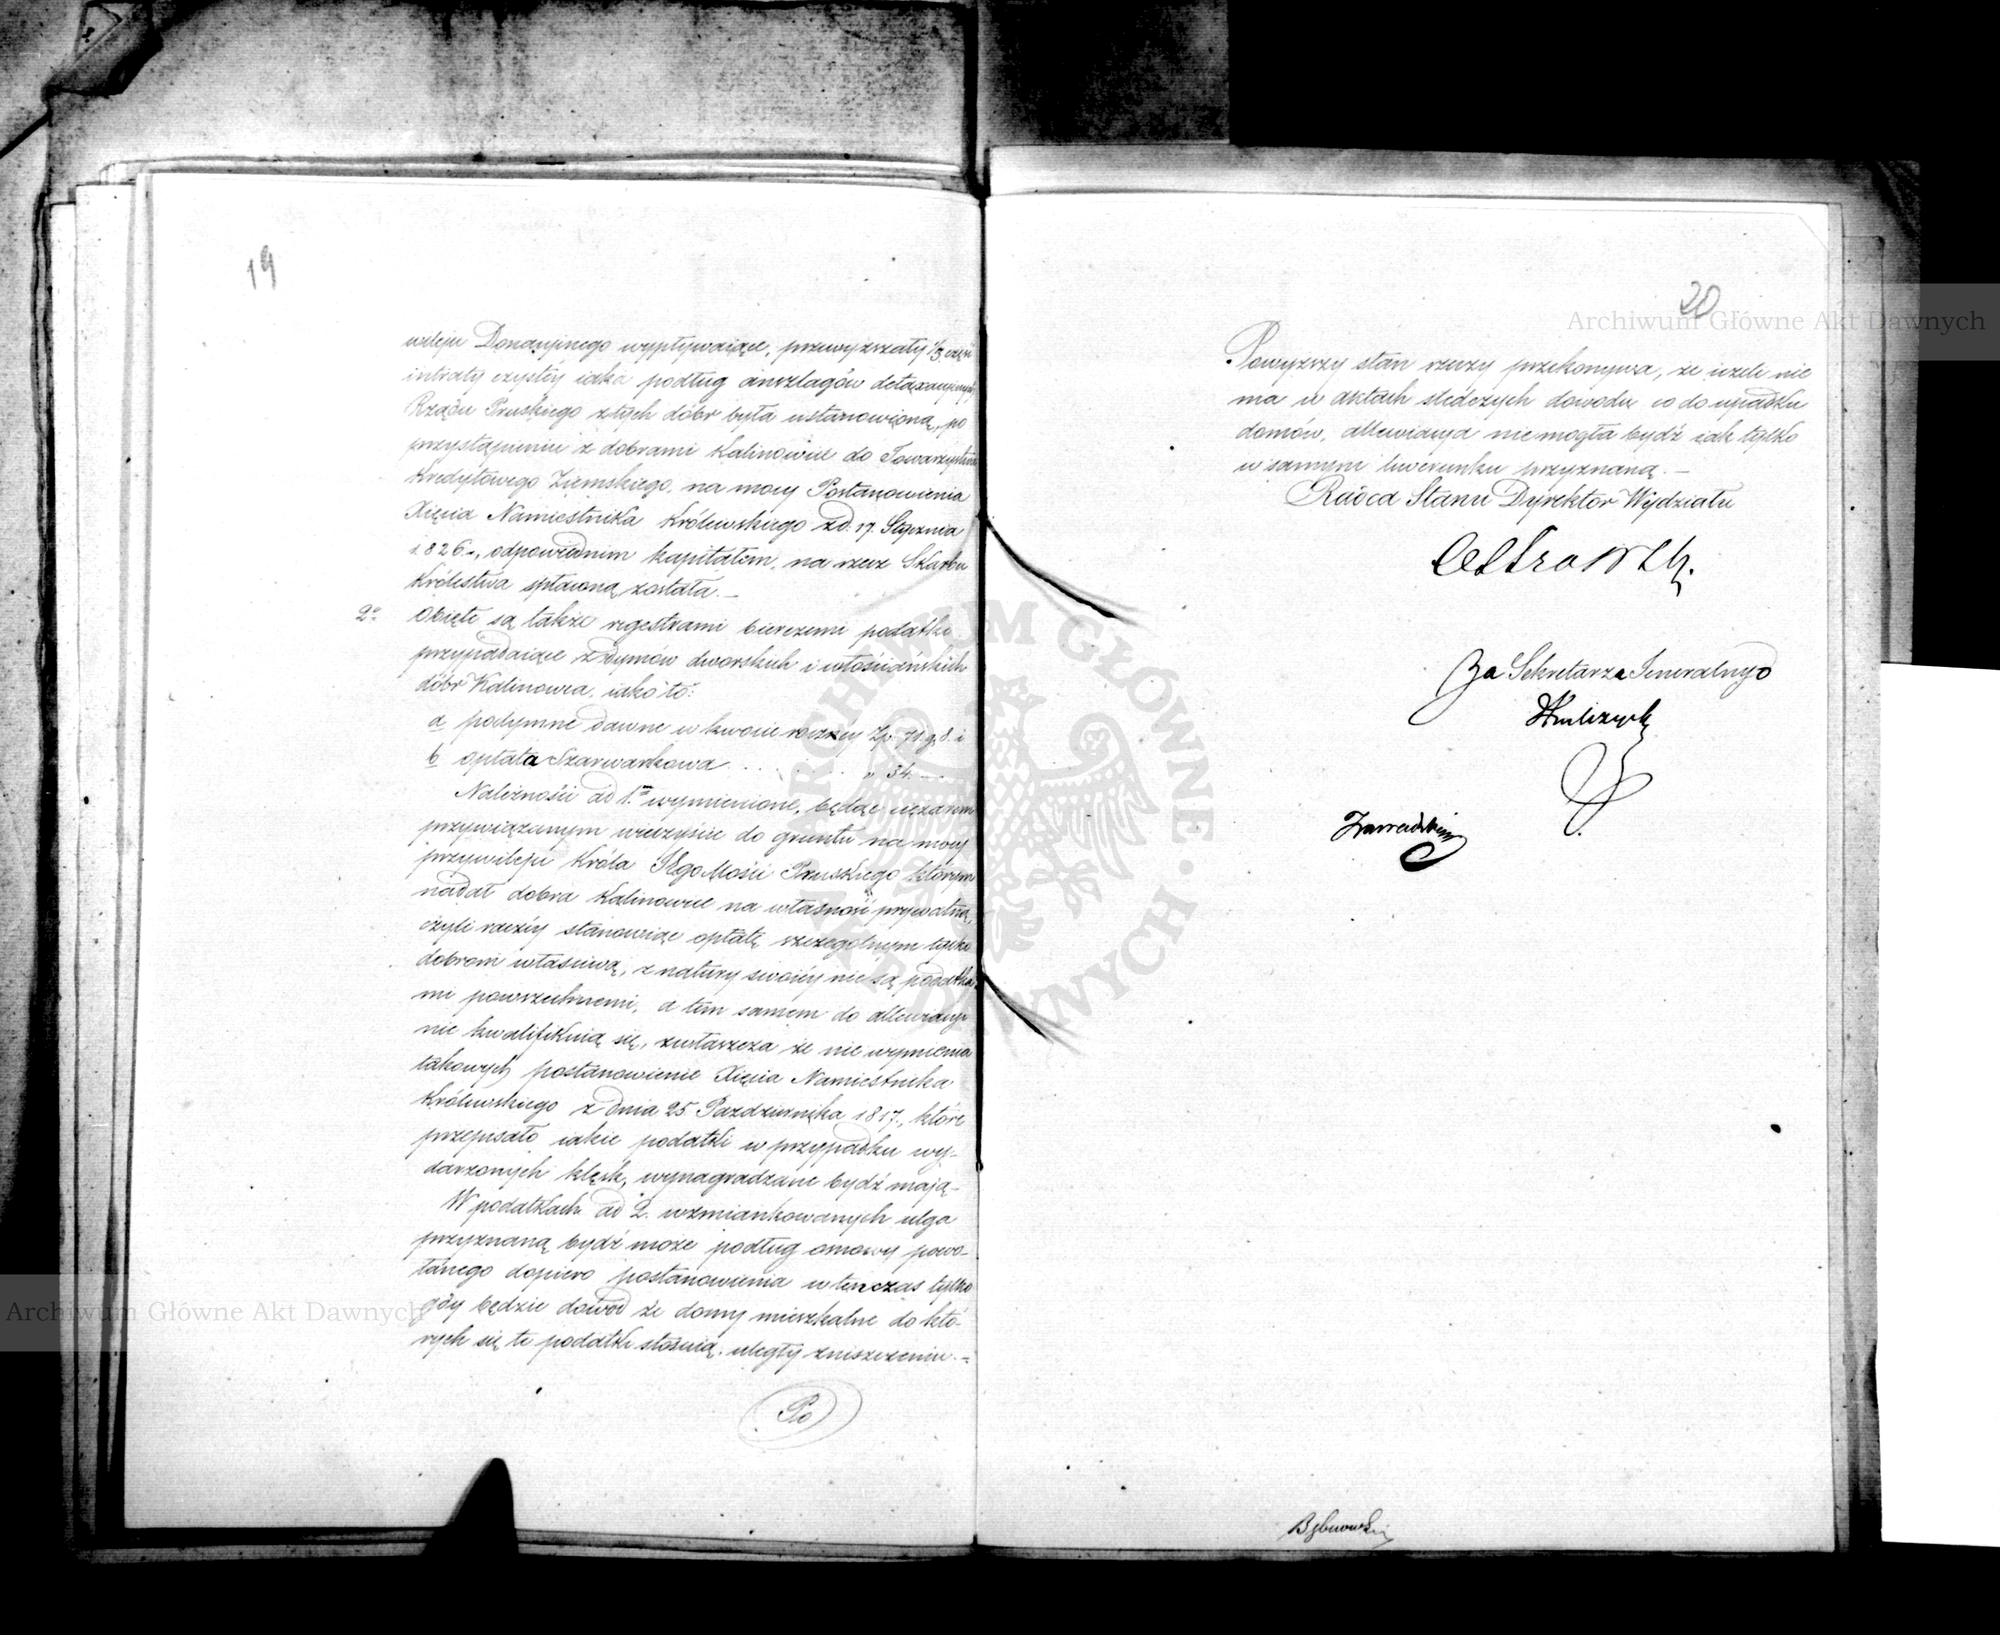 19
wileju Donacyjnego wypływaiące, przewyższały 1/3 częsć
intraty czystey iaka podług anszlagów detaxacyinych
Rządu Pruskiego z tych dóbr była ustanowioną, po
przystąpieniu z dobrami Kalinowice do Towarzystwa
Kredytowego Ziemskiego, na mocy Postanowienia
Xięcia Namiestnika Królewskiego z d. 17. Stycznia
1826 r., odpowiednim kapitałem, na rzecz Skarbu
Królestwa spłaconą została. —
2o Obięte są także regestrami bierczemi podatki
przypadaiące z dymów dworskich i włościańskich
dóbr Kalinowca, iako to:
a podymne dawne w kwocie roczney Zp. 71. g. 8. i
b opłata Szarwarkowa . . . . . . " 34. —
Należności ad 1. wymienione, będąc ciężarem
przywiązanym wieczyście do gruntu na mocy
przywileju Króla JEgo Mości Pruskiego którym
nadał dobra Kalinowice na własność prywatną,
czyli raczéy stanowiąc opłatę szczególnym tylko
dobrom właściwą, z natury swoiéy nie są podatka
mi powszechnemi, a tem samem do allewiacyi
nie kwalifikuią się, zwłaszcza że nie wymienia
takowych postanowienie Xięcia Namiestnika
Królewskiego z dnia 25 Października 1817., które
przepisało iakie podatki w przypadku wy-
darzonych klęsk, wynagradzane bydź mają. —
W podatkach ad 2. wzmiankowanych ulga
przyznaną bydź może podług osnowy powo-
łanego dopiero postanowienia w tenczas tylko
gdy będzie dowód że domy mieszkalne do któ-
rych się te podatki stosuią, uległy zniszczeniu. —
Po
20
Powyższy stan rzeczy przekonywa, że ieżeli nie
ma w aktach śledczych dowodu co do upadku
domów, allewiacya nie mogła bydź iak tylko
w samym liwerunku przyznaną. —
Radca Stanu Dyrektor Wydziału
Za Sekretarza Jeneralnego
Archiwum Główne Akt Dawnych
Archiwum Główne Akt Dawnych
ARCHIWUM GŁÓWNE AKT DAWNYCH